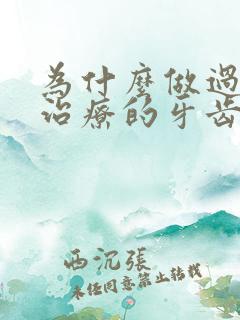 為什麼做過
治療的牙齒
西沉張
未经同意禁止转载